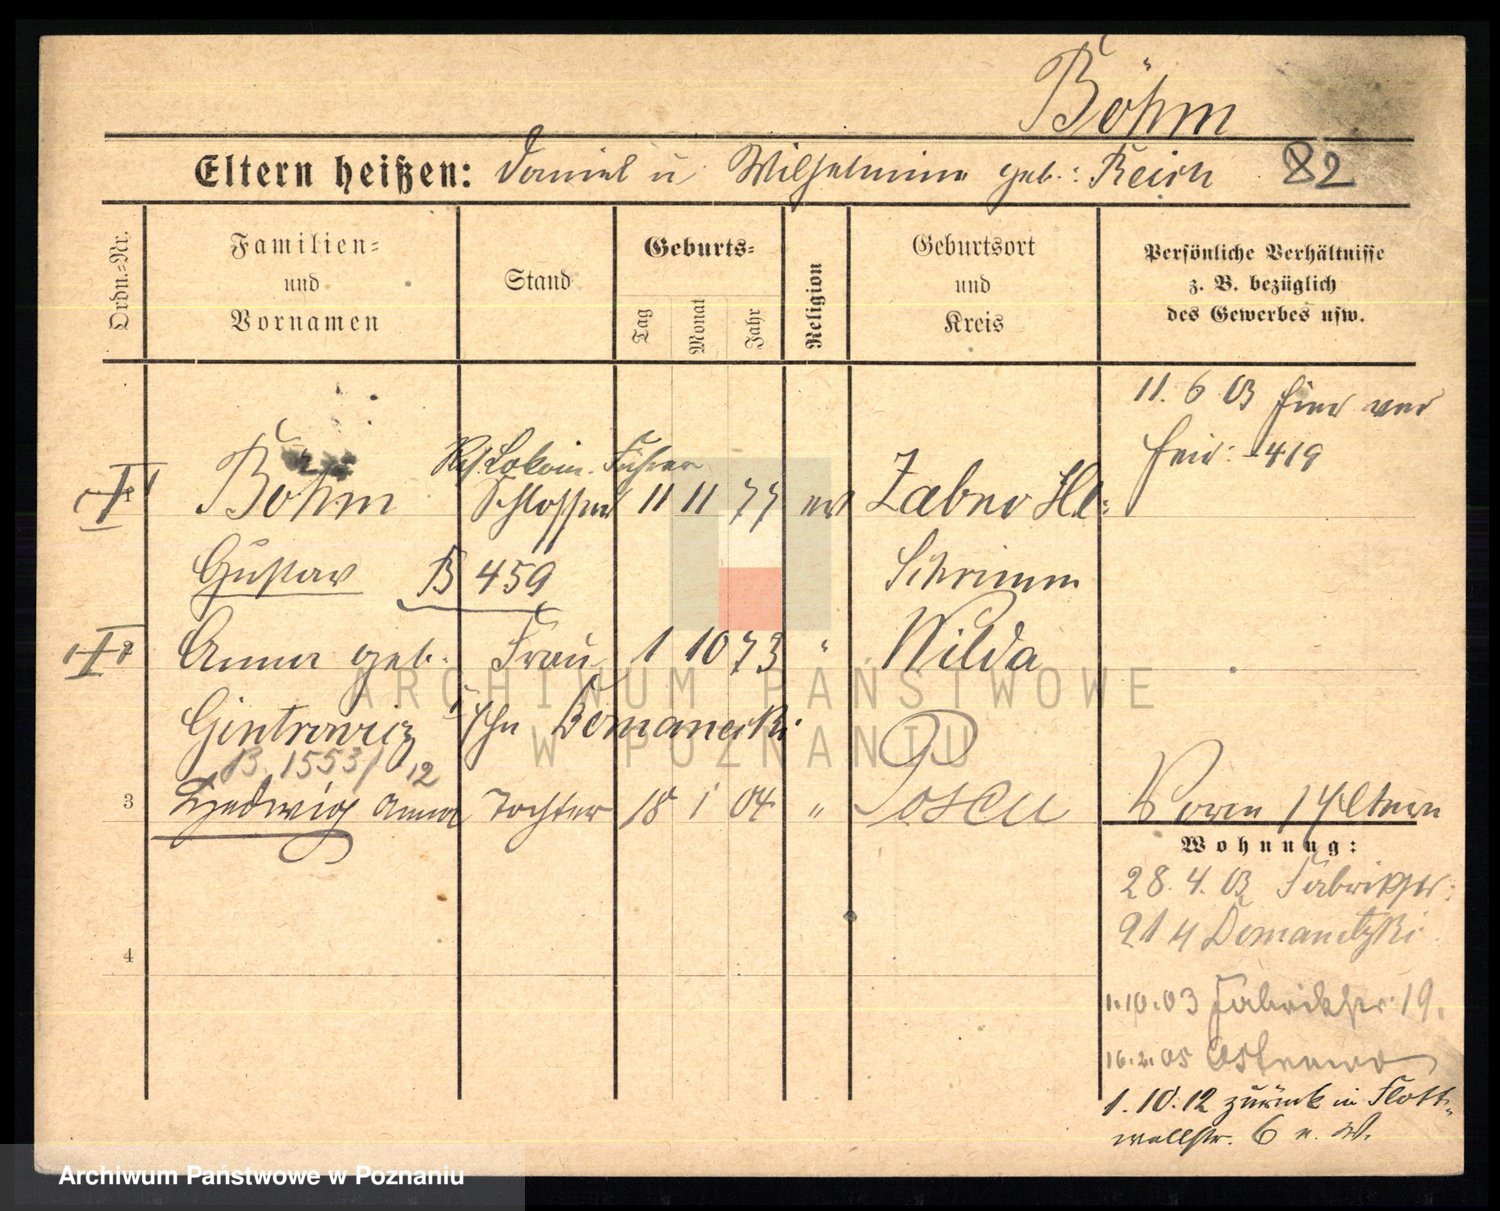 Böhm
Eltern heißen: Daniel u Wilhelmine geb.: Reich 82
Ordn.=Nr.
Familien=
und
Vornamen
Stand
Geburts=
Tag
Monat
Jahr
Religion
Geburtsort
und
Kreis
Persönliche Verhältnisse
z. B. bezüglich
des Gewerbes usw.
11. 6 03 hier ver
heir: 419
Lokom. Führer
I Böhm Schlosser 11 11 77 ev Zabno
Gustav B 459 Schrimm
II 2 Anna geb. Frau 1 10 73 " Wilda
Gintrowicz Domanecki
B. 1553/12
3 Hedwig Anna Tochter 18 1 04 " Posen
Eltern
Wohnung:
28. 4. 03 Fabrikstr:
Domanetzki
4
1.10.03 Fabrikstr. 19.
16.2.05 Ostrowo
1. 10. 12 zurück in Flott=
wellstr. 6 n. W.
ARCHIWUM PAŃSTWOWE
W POZNANIU
Archiwum Państwowe w Poznaniu